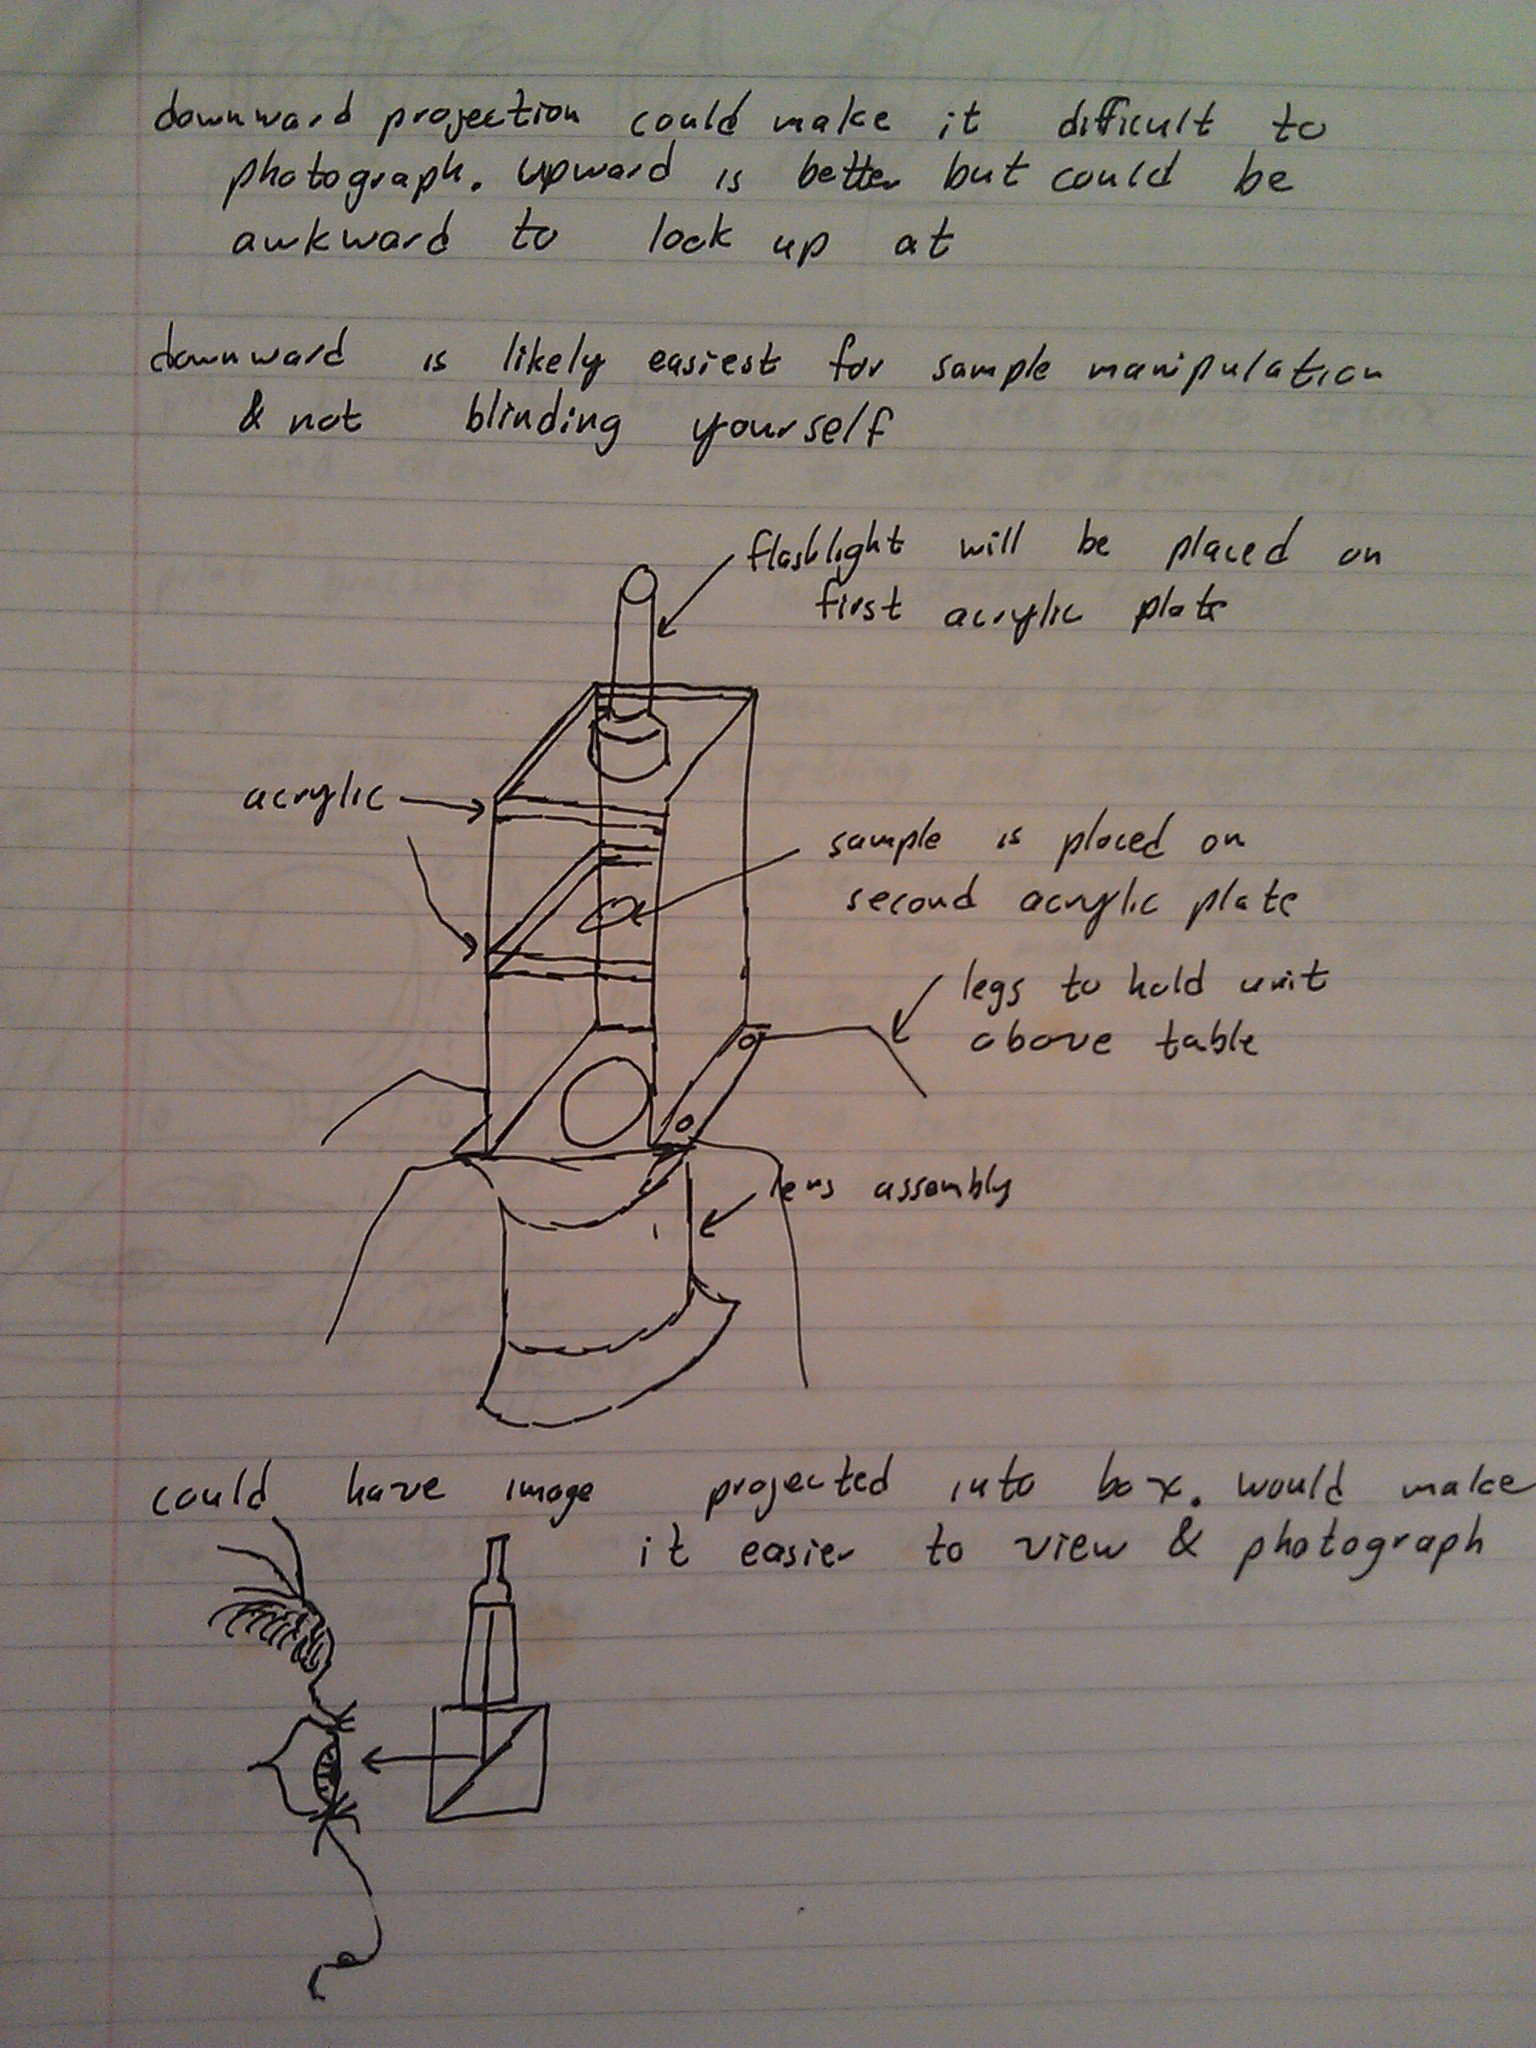 downward projection could make it difficult to
photograph. upward is better but could be
awkward to look up at
downward is likely easiest for sample manipulation
& not blinding yourself
flashlight will be placed on
first acrylic plate
acrylic
sample is placed on
second acrylic plate
legs to hold unit
above table
lens assembly
could have image projected into box. would make
it easier to view & photograph